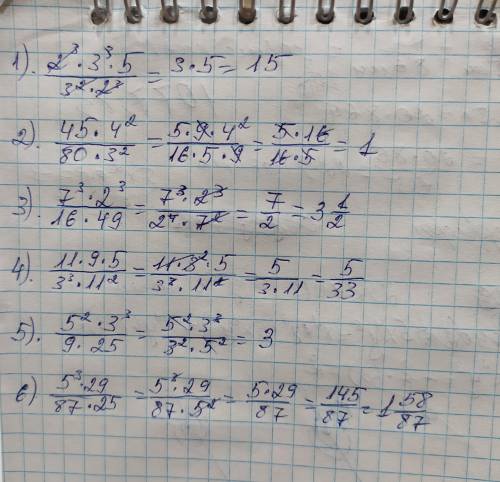 1). 2³·3³·5 / 3²·2³ = 3·5 = 15
2). 45·4² / 80·3² = 5·9·4² / 16·5·9 = 5·16 / 16·5 = 1
3). 7³·2³ / 16·49 = 7³·2³ / 2⁴·7² = 7/2 = 3 1/2
4). 11·9·5 / 3³·11² = 11·3²·5 / 3³·11² = 5 / 3·11 = 5/33
5). 5²·3³ / 9·25 = 5²·3³ / 3²·5² = 3
6) 5³·29 / 87·25 = 5³·29 / 87·5² = 5·29 / 87 = 145/87 = 1 58/87